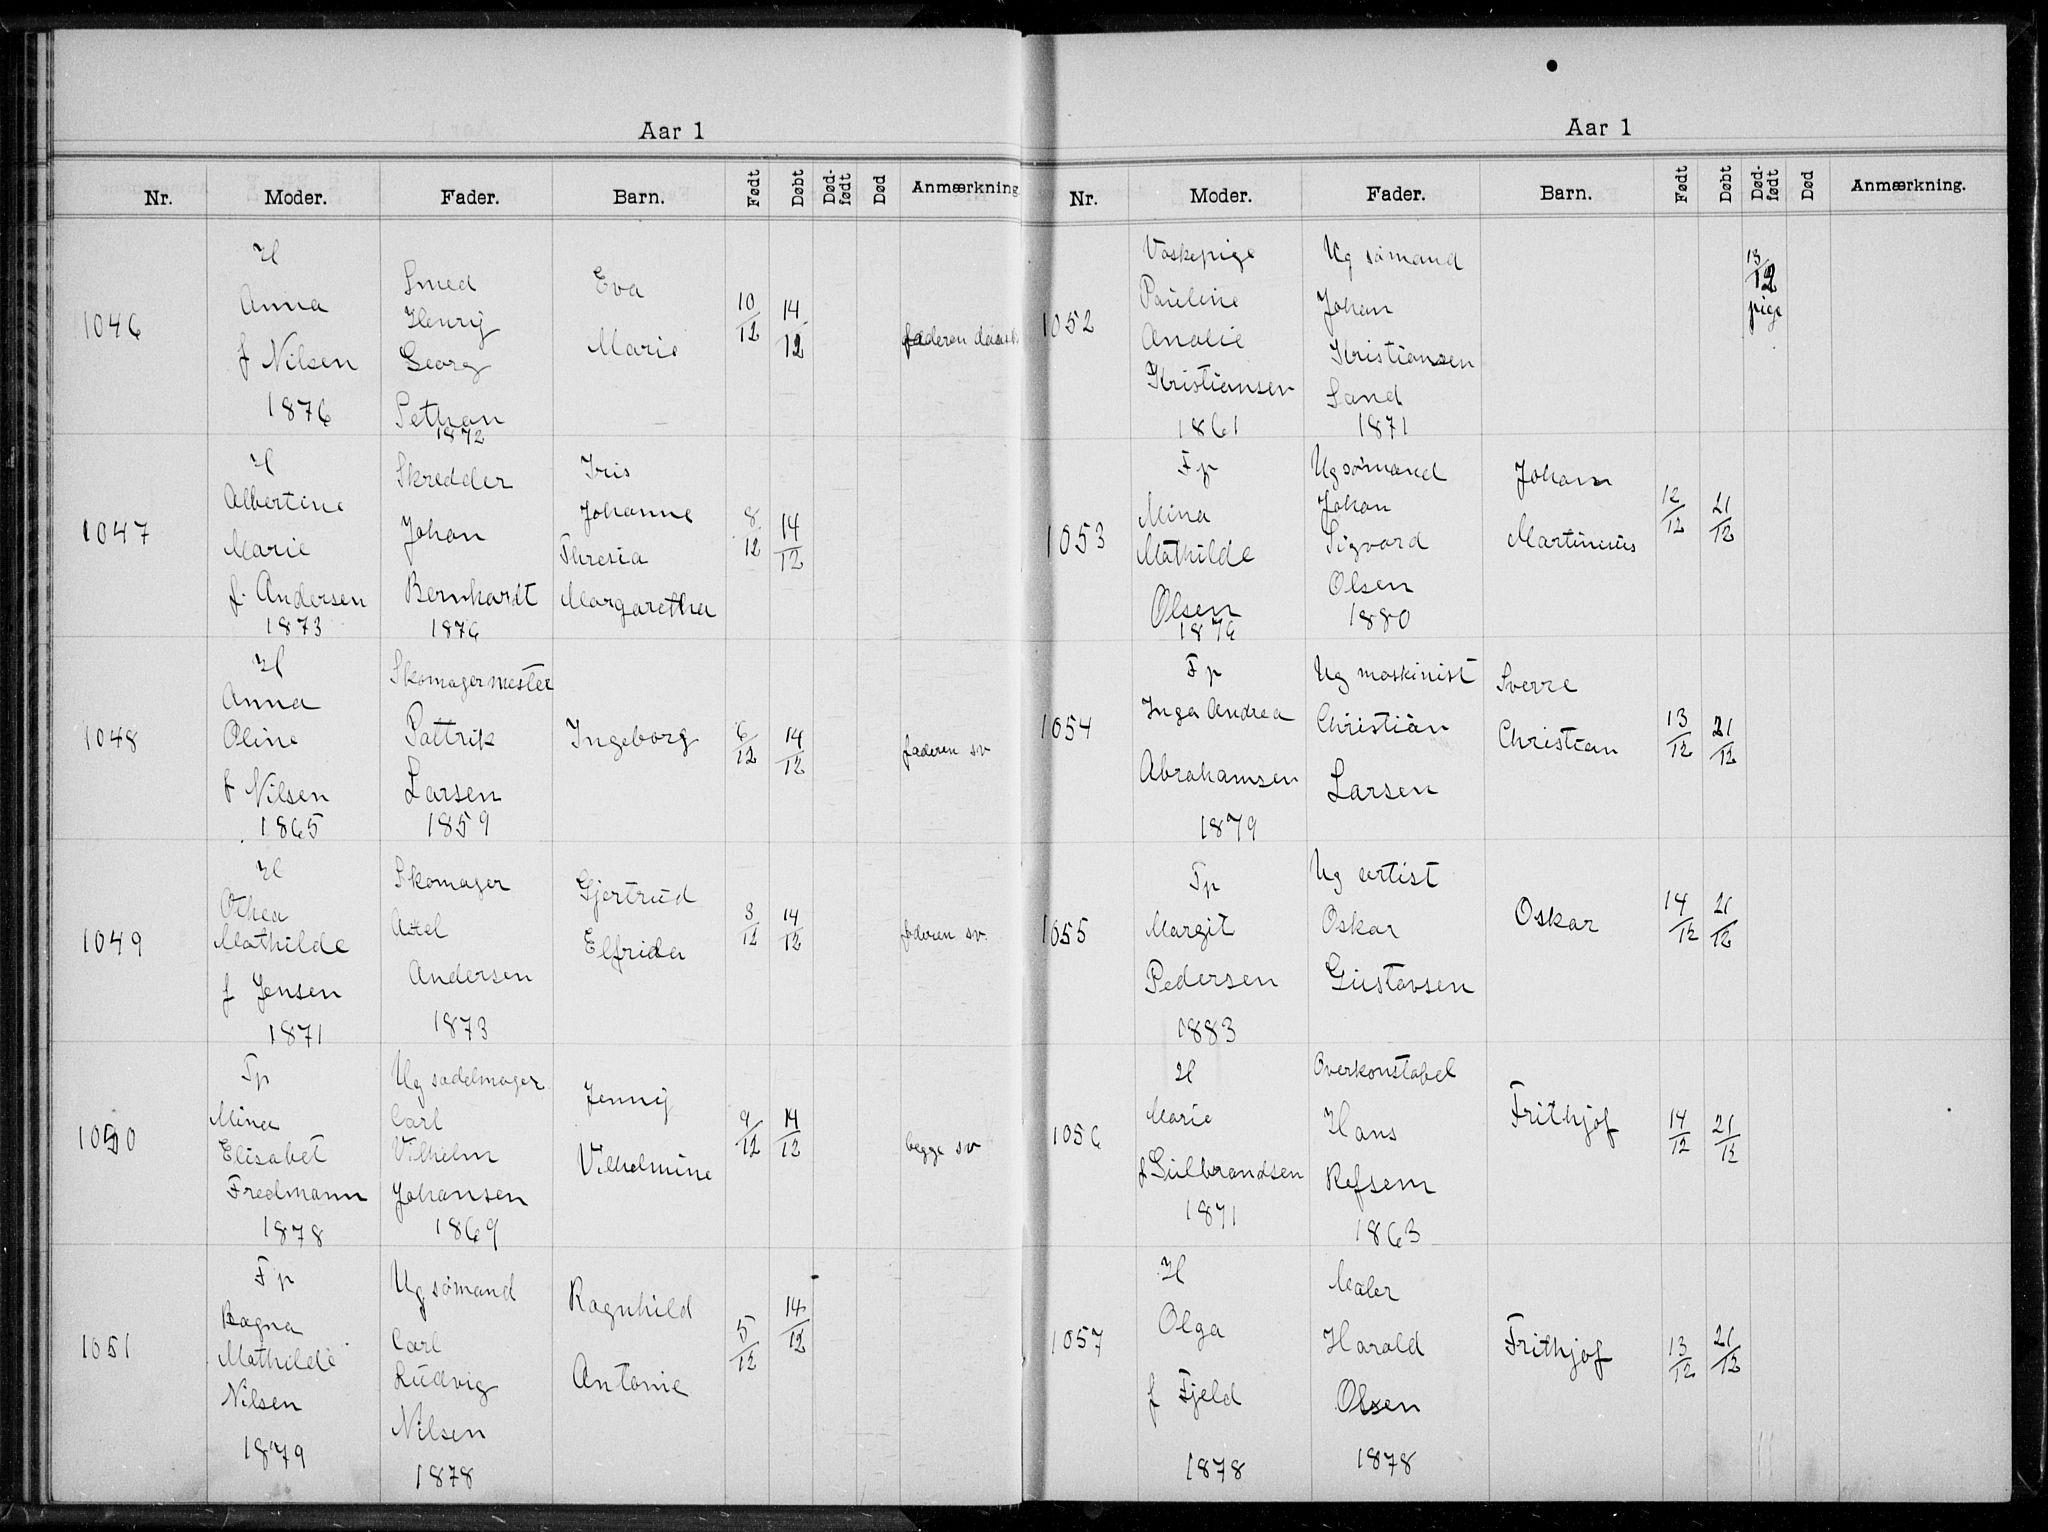 Aar 1
Nr. Moder. Fader. Barn. Født Døbt Død-født Død Anmærkning
1046
H
Anna
f Nilsen
1876
Smed
Henrij
Georg
Pethan
1872
Eva
Marie
10/12
14/12
faderen dansk
1047
H
Albertine
Marie
f. Andersen
1873
Skredder
Johan
Bernhardt
1876
Iris
Johanne
Thresia
Margaretha
8/12
14/12
1048
H
Anna
Oline
f Nilsen
1865
Skomagermester
Pattrik
Larsen
1859
Ingeborg
6/12
14/12
faderen sv
1049
H
Othea
Mathilde
f Jensen
1871
Skomager
Axel
Andersen
1873
Gjertrud
Elfrida
3/12
14/12
faderen sv.
1050
Fp
Mina
Elisabet
Fredmann
1878
Ug sadelmager
Carl
Vilhelm
Johansen
1869
Jennij
Vilhelmine
9/12
14/12
begge sv
1051
Fp
Ragna
Mathilde
Nilsen
1879
Ug sømand
Carl
Ludvig
Nilsen
1878
Ragnhild
Antonie
5/12
14/12
Aar 1
Nr. Moder. Fader. Barn. Født Døbt Død-født Død Anmærkning.
1052
Vaskepige
Pauline
Analie
Kristiansen
1861
Ug sømand
Johan
Kristiansen
Sand
1871
13/12
pige
1053
Fp
Mina
Mathilde
Olsen
1876
Ug sømand
Johan
Sigvard
Olsen
1880
Johan
Martinius
12/12
21/12
1054
Fp
Inga Andrea
Abrahamsen
1879
Ug maskinist
Christian
Larsen
Sverre
Christian
13/12
21/12
1055
Fp
Margit
Pedersen
1883
Ug artist
Oskar
Gustavsen
Oskar
14/12
21/12
1056
H
Marie
f Gulbrandsen
1871
Overkonstabel
Hans
Refsem
1863
Frithjof
14/12
21/12
1057
H
Olga
f Fjeld
1878
Maler
Harald
Olsen
1878
Frithjof
13/12
21/12